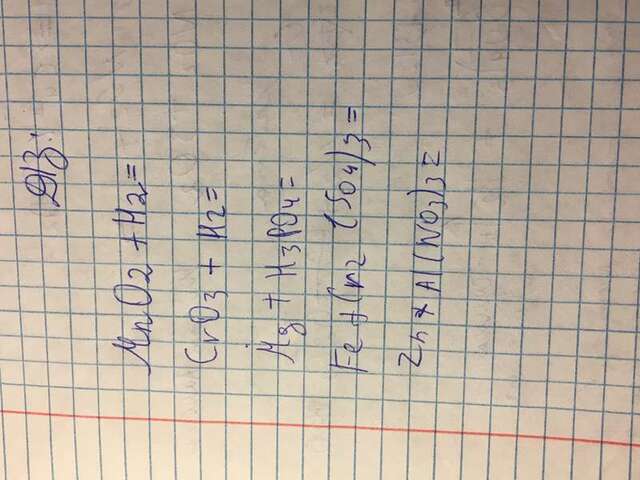 Д/З:
MnO2 + H2 =
CrO3 + H2 =
Mg + H3PO4 =
Fe + Cr2 (SO4)3 =
Zn + Al(NO3)3 =